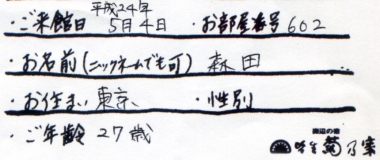 平成24年
・ご来館日 5月4日 ・お部屋番号 602
・お名前(ニックネームでも可) 森田
・お住まい 東京 ・性別
・ご年齢 27歳
海辺の宿
菊乃家